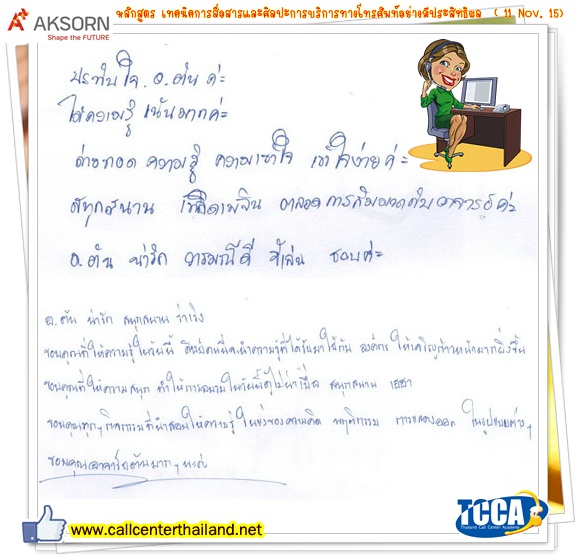 AKSORN
Shape the FUTURE
หลักสูตร เทคนิคการสื่อสารและศิลปะการบริการทางโทรศัพท์อย่างมีประสิทธิผล ( 11 Nov. 15)
ประทับใจ อ.ตั้น ค่ะ
ได้ความรู้ เน้นมากค่ะ
ถ่ายทอด ความรู้ ความเข้าใจ เข้าใจง่าย ค่ะ
สนุกสนาน เพลิดเพลิน ตลอดการสัมมนากับอาจารย์ค่ะ
อ.ตั้น น่ารัก อารมณ์ดี ขี้เล่น ชอบค่ะ
อ.ตั้น น่ารัก สนุกสนาน ร่าเริง
ขอบคุณที่ให้ความรู้ในวันนี้ นำความรู้ที่ได้รับมาใช้กับ องค์กร ให้เจริญก้าวหน้ามากยิ่งขึ้น
ขอบคุณที่ให้ความสนุก ทำให้การอบรมในวันนี้ดูไม่น่าเบื่อ สนุกสนาน เฮฮา
ขอบคุณทุกๆกิจกรรมที่นำสอนให้ความรู้ ในแง่ของความคิด พฤติกรรม การแสดงออก ในรูปแบบต่างๆ
ขอบคุณอาจารย์ตั้นมากๆ นะค่ะ
www.callcenterthailand.net
TCCA
Thailand Call Center Academy